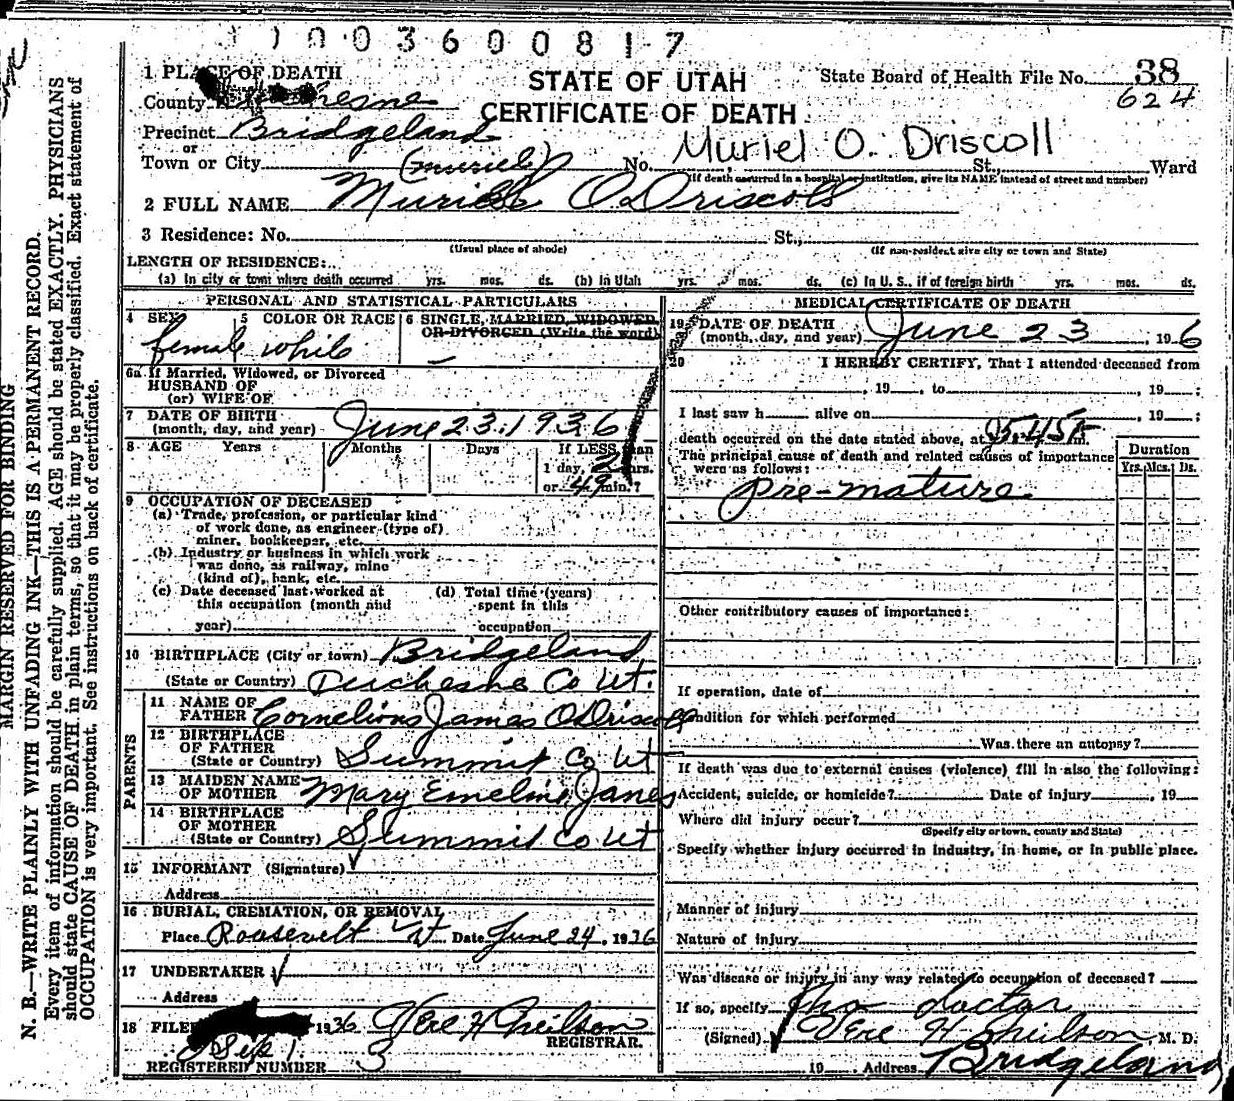 1003600817
1 PLACE OF DEATH
STATE OF UTAH
State Board of Health File No. 38
County
624
CERTIFICATE OF DEATH
Precinct Bridgeland
or
Muriel O. Driscoll
Town or City (muriel) No. St., Ward
(If death occurred in a hospital or institution, give its NAME instead of street and number)
2 FULL NAME O'Driscoll
3 Residence: No. St.,
(Usual place of abode) (If non-resident give city or town and State)
LENGTH OF RESIDENCE:
(a) In city or town where death occurred yrs. mos. ds. (b) In Utah yrs. mos. ds. (c) In U. S., if of foreign birth yrs. mos. ds.
PERSONAL AND STATISTICAL PARTICULARS
4 SEX 5 COLOR OR RACE 6 SINGLE, MARRIED, WIDOWED
OR DIVORCED (Write the word)
female white –
6a If Married, Widowed, or Divorced
HUSBAND OF
(or) WIFE OF
7 DATE OF BIRTH
(month, day, and year) June 23. 1936
8 AGE Years Months Days If LESS than
1 day, 2 hrs.
or 49 min.?
9 OCCUPATION OF DECEASED
(a) Trade, profession, or particular kind
of work done, as engineer (type of)
miner, bookkeeper, etc.
(b) Industry or business in which work
was done, as railway, mine
(kind of), bank, etc.
(c) Date deceased last worked at (d) Total time (years)
this occupation (month and spent in this
year) occupation
10 BIRTHPLACE (City or town) Bridgeland
(State or Country) Duchesne Co Ut.
PARENTS
11 NAME OF
FATHER Cornelious James O'Driscoll
12 BIRTHPLACE
OF FATHER
(State or Country) Summit Co Ut
13 MAIDEN NAME
OF MOTHER Mary Emeline Janes
14 BIRTHPLACE
OF MOTHER
(State or Country) Summit Co Ut
15 INFORMANT (Signature) ✓
Address
16 BURIAL, CREMATION, OR REMOVAL
Place Roosevelt Ut Date June 24, 1936
17 UNDERTAKER ✓
Address
18 FILED 1936 Vere H
REGISTRAR.
Sep 1
REGISTERED NUMBER 3
MEDICAL CERTIFICATE OF DEATH
19 DATE OF DEATH
(month, day, and year) June 23, 19 6
20 I HEREBY CERTIFY, That I attended deceased from
, 19 , to , 19 ;
I last saw h alive on , 19 ;
death occurred on the date stated above, at 5:45 P m.
The principal cause of death and related causes of importance
were as follows:
Duration
Yrs. Mos. Ds.
Pre-mature
Other contributory causes of importance:
If operation, date of
Condition for which performed
Was there an autopsy?
If death was due to external causes (violence) fill in also the following:
Accident, suicide, or homicide? Date of injury , 19
Where did injury occur?
(Specify city or town, county and State)
Specify whether injury occurred in industry, in home, or in public place.
Manner of injury
Nature of injury
Was disease or injury in any way related to occupation of deceased?
If so, specify no doctor
(Signed) Vere H M. D.
19 Address Bridgeland
MARGIN RESERVED FOR BINDING
N. B.—WRITE PLAINLY WITH UNFADING INK—THIS IS A PERMANENT RECORD.
Every item of information should be carefully supplied. AGE should be stated EXACTLY. PHYSICIANS
should state CAUSE OF DEATH in plain terms, so that it may be properly classified. Exact statement of
OCCUPATION is very important. See instructions on back of certificate.